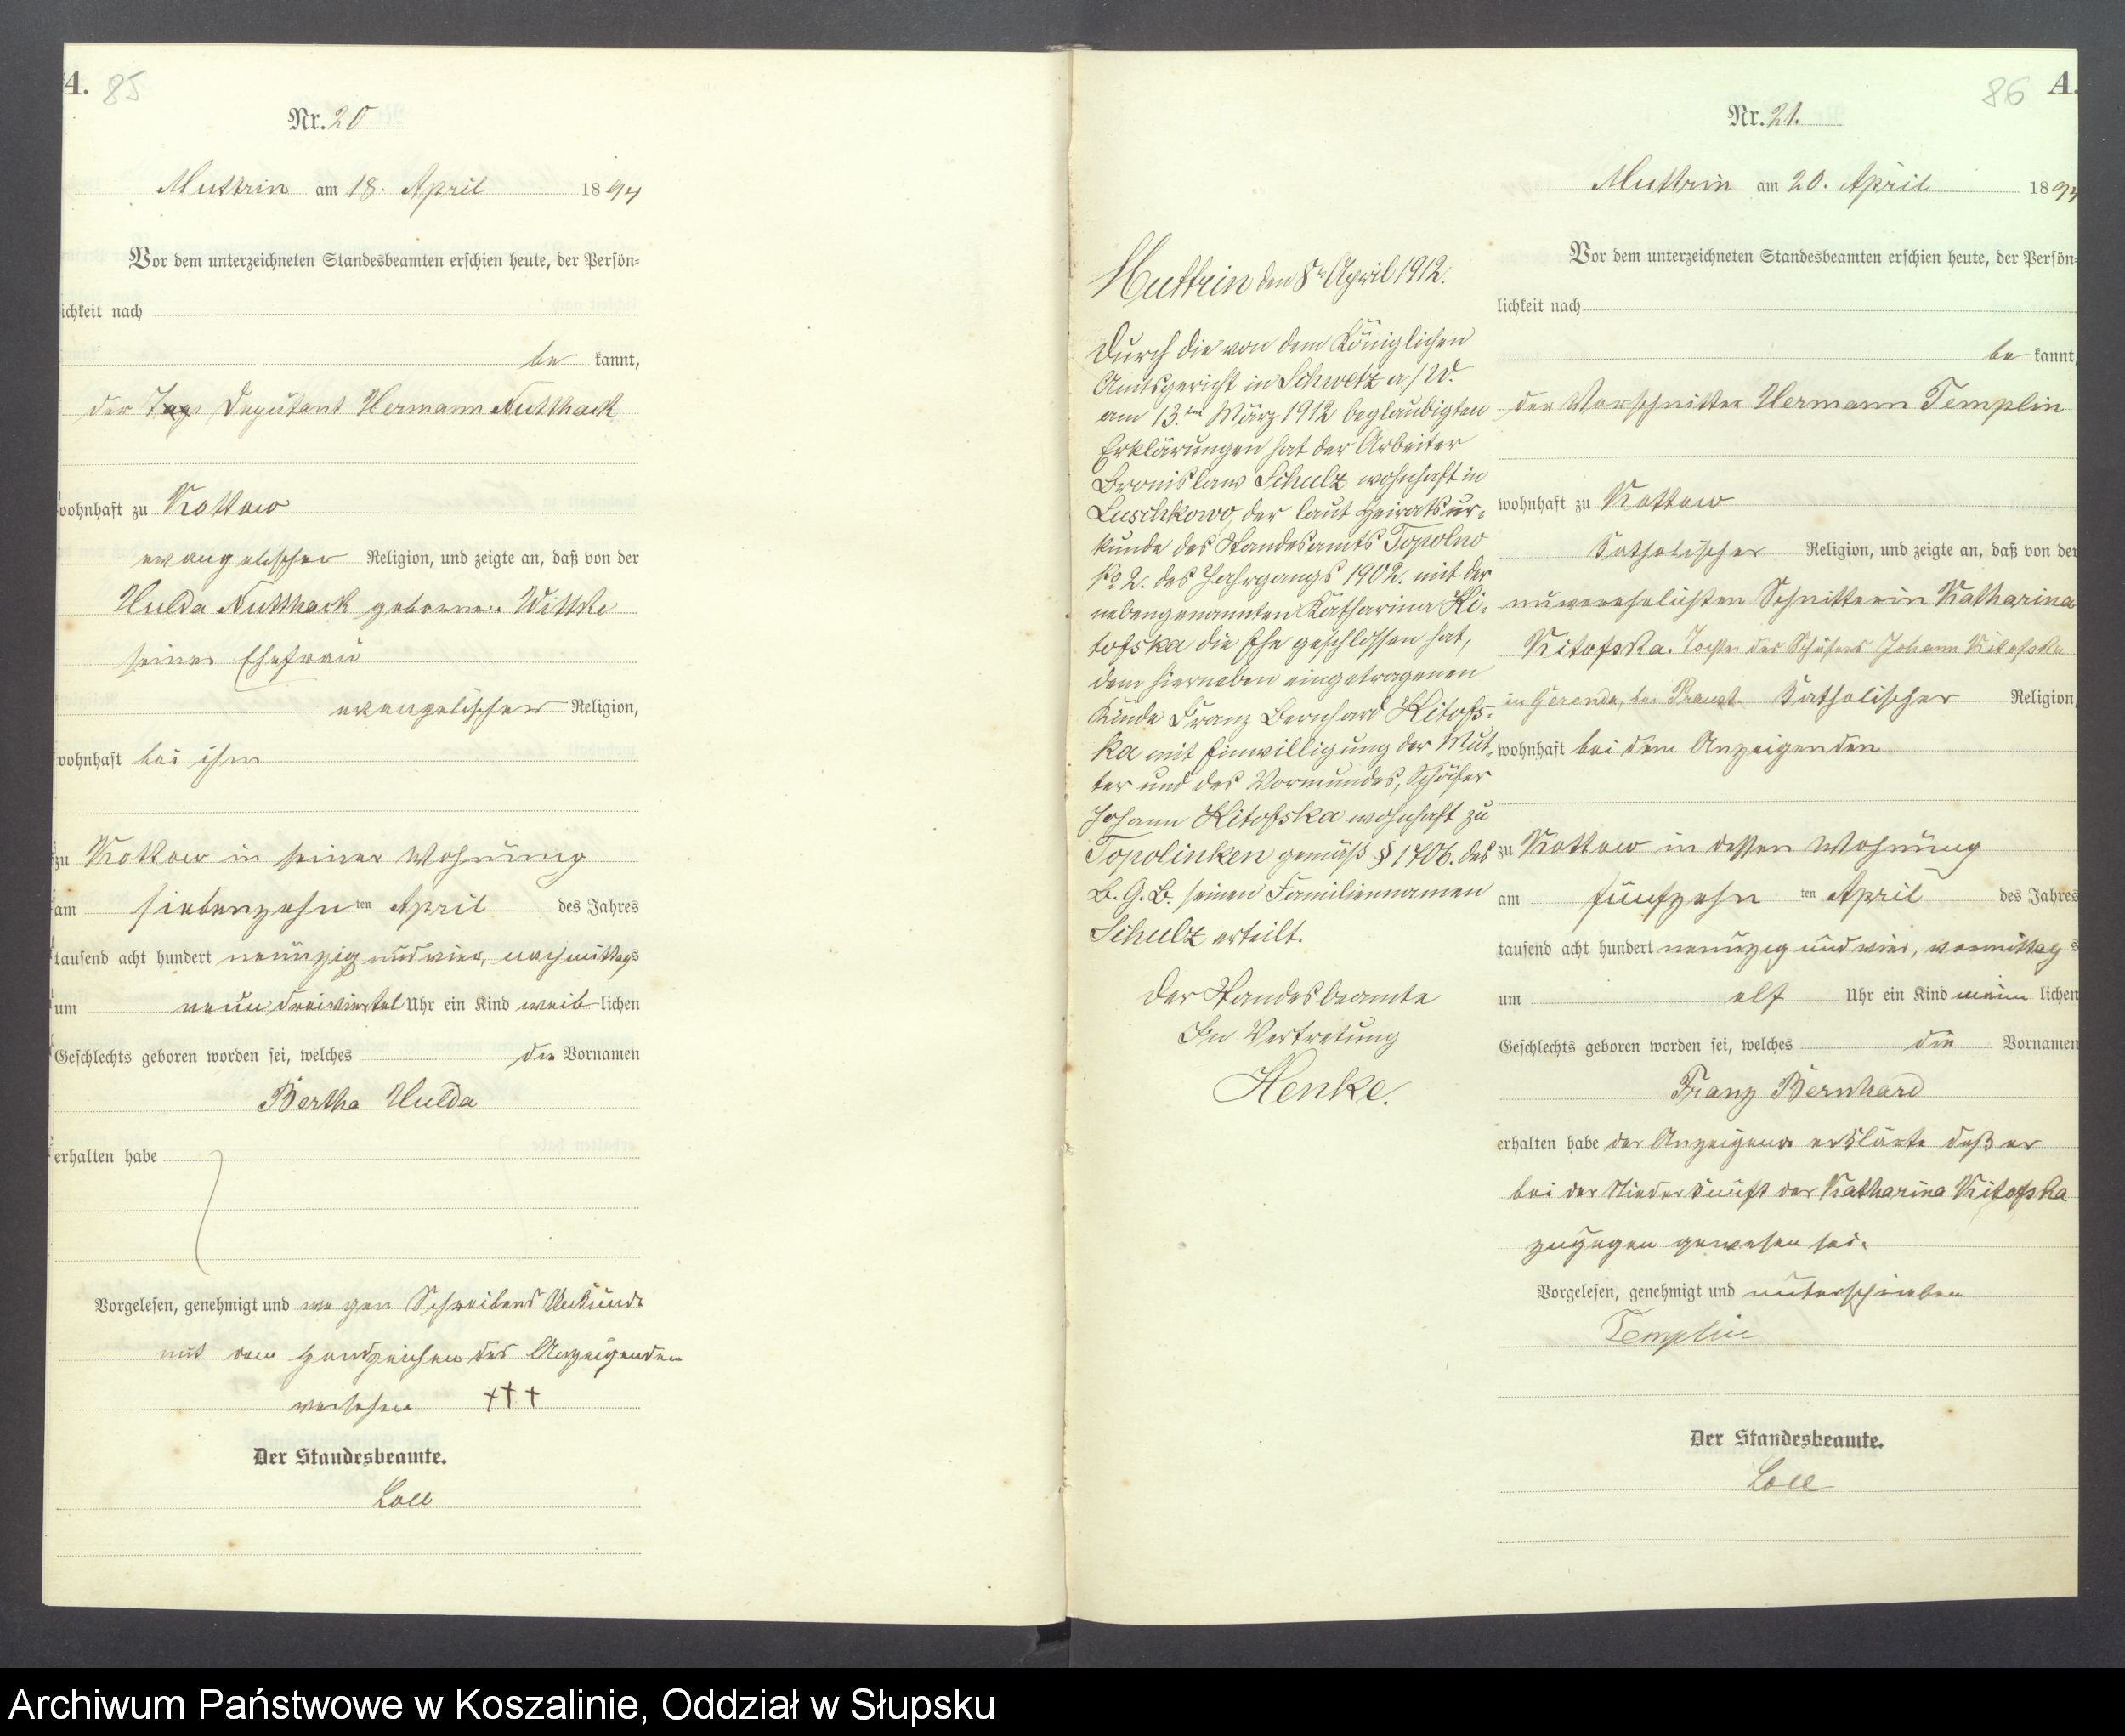 A. 85
Nr. 20
Muttrin am 18. April 1894
Vor dem unterzeichneten Standesbeamten erschien heute, der Persön=
lichkeit nach
be kannt,
der Deputant Hermann Nutthack
wohnhaft zu Kottow
evangelischer Religion, und zeigte an, daß von der
Hulda Nutthack geborenen Wittke
seiner Ehefrau
evangelischer Religion,
wohnhaft bei ihm
zu Kottow in seiner Wohnung
am siebenzehn ten April des Jahres
tausend acht hundert neunzig und vier, nachmittags
um neun dreiviertel Uhr ein Kind weib lichen
Geschlechts geboren worden sei, welches die Vornamen
Bertha Hulda
erhalten habe
Vorgelesen, genehmigt und wegen Schreibens Unkunde
mit dem Handzeichen des Anzeigenden
versehen +++
Der Standesbeamte.
Loll
Muttrin den 8ten April 1912.
Durch die von dem Königlichen
Amtsgericht in Schwetz a./W.
am 13.ten März 1912 beglaubigten
Erklärungen hat der Arbeiter
Bronislaw Schulz wohnhaft in
Luschkowo, der laut Heiratsur-
kunde des Standesamts Topolno
No 2. des Jahrgangs 1902. mit der
nebengenannten Katharina Ki-
tofska die Ehe geschlossen hat,
dem hierneben eingetragenen
Kinde Franz Bernhard Kitofs-
ka mit Einwilligung der Mut-
ter und des Vormundes, Schäfer
Johann Kitofska wohnhaft zu
Topolinken gemäß § 1706. des
B. G. B. seinen Familiennamen
Schulz erteilt.
Der Standesbeamte
In Vertretung
Henke.
86 A.
Nr. 21.
Muttrin am 20. April 1894
Vor dem unterzeichneten Standesbeamten erschien heute, der Persön=
lichkeit nach
be kannt,
der Vorschnitter Hermann Templin
wohnhaft zu Kottow
katholischer Religion, und zeigte an, daß von der
unverehelichten Schnitterin Katharina
Kitofska. Tochter des Schäfers Johann Kitofska
in bei Praust. katholischer Religion,
wohnhaft bei dem Anzeigenden
zu Kottow in dessen Wohnung
am fünfzehn ten April des Jahres
tausend acht hundert neunzig und vier, vormittag s
um elf Uhr ein Kind männ lichen
Geschlechts geboren worden sei, welches die Vornamen
Franz Bernhard
erhalten habe der Anzeigende erklärte daß er
bei der Niederkunft der Katharina Kitofska
zugegen gewesen sei.
Vorgelesen, genehmigt und unterschrieben
Templin
Der Standesbeamte.
Loll
Archiwum Państwowe w Koszalinie, Oddział w Słupsku